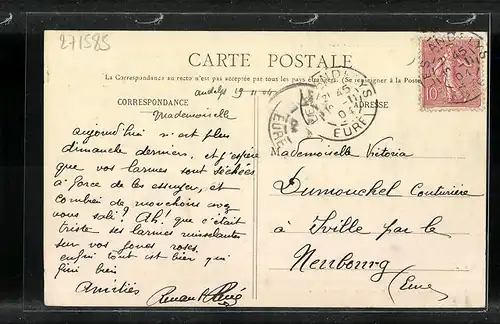 271585
CARTE POSTALE
La Correspondance au recto n'est pas acceptée par tous les pays étrangers. (Se renseigner à la Poste)
andelys 19 11 04
CORRESPONDANCE
ADRESSE
Mademoiselle
aujourd'hui n'est plus
dimanche dernier, et j'espère
que vos larmes sont séchées
à force de les essuyer, et
combien de mouchoirs avez
vous sali? Ah! que c'était
triste ses larmes ruisselantes
sur vos joues roses.
enfin tout est bien qui
fini bien
Amitiés
Mademoiselle Victoria
Dumouchel Couturière
à Iville par le
Neubourg
(Eure
EURE
EURE
10